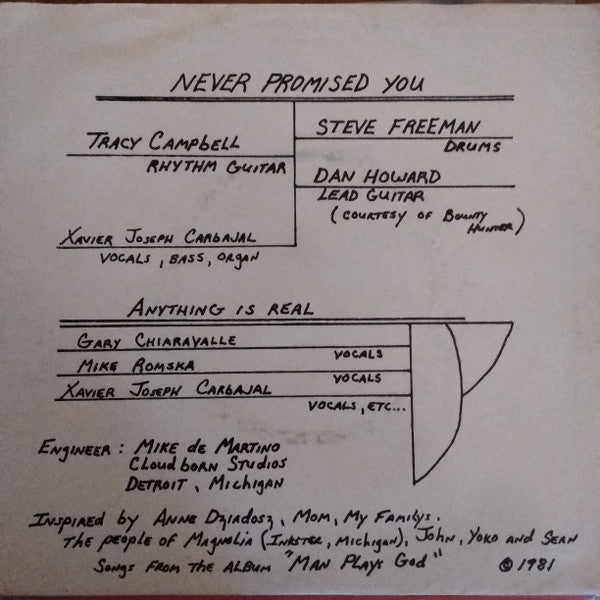 NEVER PROMISED YOU
TRACY CAMPBELL
RHYTHM GUITAR
STEVE FREEMAN
DRUMS
DAN HOWARD
LEAD GUITAR
(COURTESY OF BOUNTY
HUNTER)
XAVIER JOSEPH CARBAJAL
VOCALS, BASS, ORGAN
ANYTHING IS REAL
GARY CHIARAVALLE
VOCALS
MIKE ROMSKA
VOCALS
XAVIER JOSEPH CARBAJAL
VOCALS, ETC...
ENGINEER: MIKE de MARTINO
CLOUDBORN STUDIOS
DETROIT, MICHIGAN
INSPIRED by ANNE DZIADOSZ, MOM, MY FAMILYS.
THE PEOPLE OF MAGNOLIA (INKSTER, MICHIGAN), JOHN, YOKO AND SEAN
SONGS FROM THE ALBUM "MAN PLAYS GOD"
© 1981